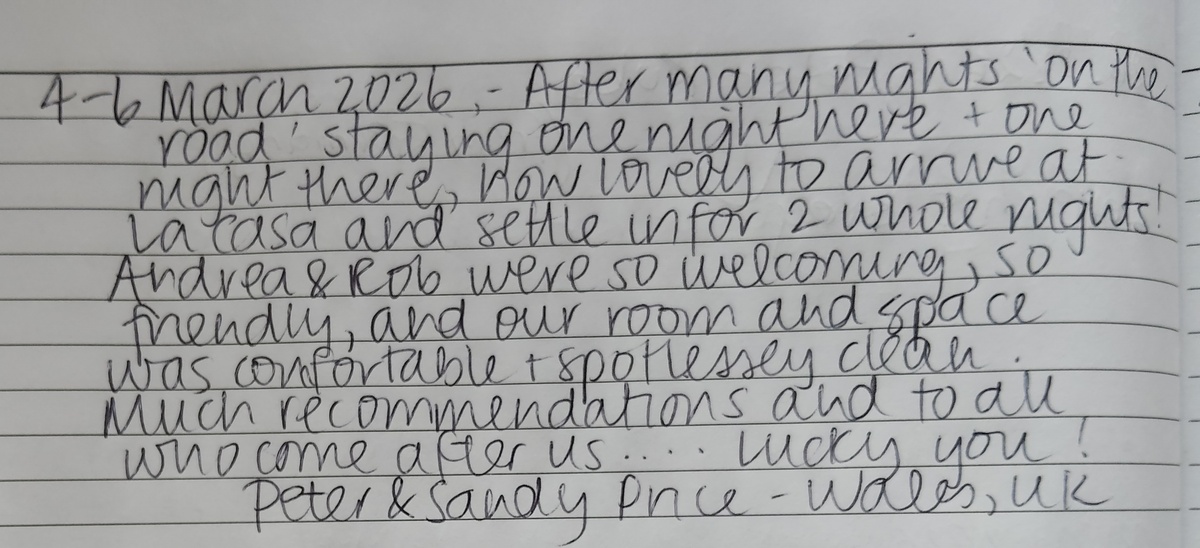 4-6 March 2026, - After many nights 'on the
road' staying one night here + one
night there, How lovely to arrive at
La Casa and settle in for 2 whole nights!
Andrea & Rob were so welcoming, so
friendly, and our room and space
was comfortable + spotlessey clean.
Much recommendations and to all
who come after us.... lucky you!
Peter & Sandy Price - Wales, UK